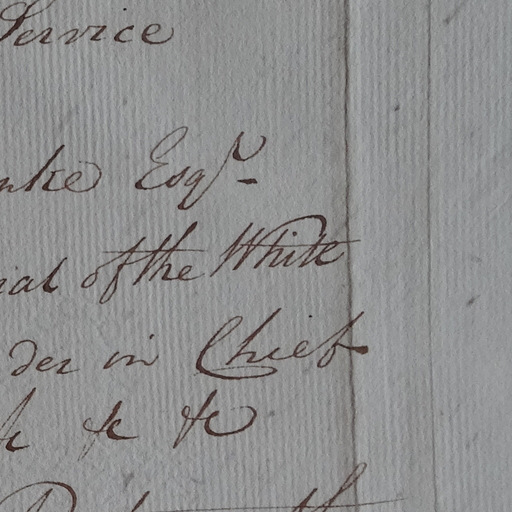 Service
nke Esqr.
ial of the White
der in Chief
&c &c &c